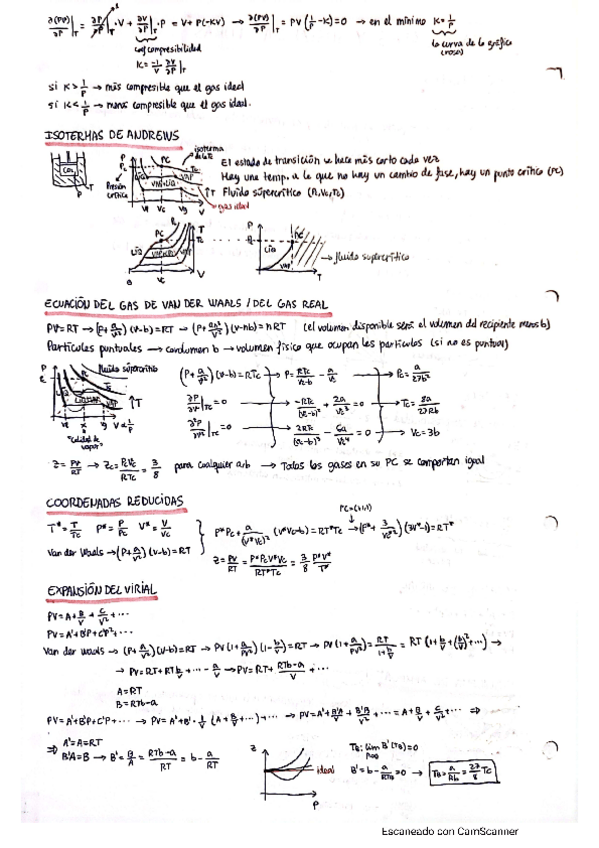 ∂(PV)/∂P|T = ∂P/∂P|T · V + ∂V/∂P|T · P = V + P(-KV) → ∂(PV)/∂P|T = PV(1/P - K) = 0 → en el mínimo K = 1/P
coef compresibilidad
K = -1/V ∂V/∂P|T
la curva de la gráfica
(rosa)
si K > 1/P → más compresible que el gas ideal
si K < 1/P → menos compresible que el gas ideal.
ISOTERMAS DE ANDREWS
isoterma de la Tc
El estado de transición se hace más corto cada vez
Hay una temp. a la que no hay un cambio de fase, hay un punto crítico (PC)
Presión crítica
↑T Fluido súpercrítico (Pc, Vc, Tc)
gas ideal
LÍQ
VAP
fluido supercrítico
ECUACIÓN DEL GAS DE VAN DER WAALS / DEL GAS REAL
PV = RT → (P + a/V²)(V-b) = RT → (P + an²/V²)(V-nb) = nRT (el volumen disponible será el volumen del recipiente menos b)
Partículas puntuales → covolumen b → volumen físico que ocupan las partículas (si no es puntual)
Fluido súpercrítico
(P + a/V²)(V-b) = RTc → P = RTc/(Vc-b) - a/Vc² → Pc = a/27b²
∂P/∂V|Tc = 0 → -RTc/(Vc-b)² + 2a/Vc³ = 0 → Tc = 8a/27Rb
∂²P/∂V²|Tc = 0 → 2RTc/(Vc-b)³ - 6a/Vc⁴ = 0 → Vc = 3b
↑T
"Calidad de vapor"
Z = PV/RT → Zc = PcVc/RTc = 3/8 para cualquier a y b → Todos los gases en su PC se comportan igual
COORDENADAS REDUCIDAS
T* = T/Tc P* = P/Pc V* = V/Vc
Van der Waals → (P + a/V²)(V-b) = RT
P*Pc + a/(V*Vc)² (V*Vc-b) = RT*Tc
Z = PV/RT = P*PcV*Vc/RT*Tc = 3/8 P*V*/T*
EXPANSIÓN DEL VIRIAL
PV = A + B/V + C/V² + ...
PV = A' + B'P + C'P² + ...
Van der Waals → (P + a/V²)(V-b) = RT → PV(1 + a/PV²)(1 - b/V) = RT → PV(1 + a/PV²) = RT/(1-b/V) = RT(1 + b/V + (b/V)² + ...) →
→ PV = RT + RTb/V + ... - a/V → PV = RT + (RTb-a)/V + ...
A = RT
B = RTb-a
PV = A' + B'P + C'P + ... → PV = A' + B' · 1/V (A + B/V + ...) + ... → PV = A' + B'A/V + B'B/V² + ... = A + B/V + C/V² + ... ⇒
⇒ A' = A = RT
B'A = B → B' = B/A = (RTb-a)/RT = b - a/RT
Z
ideal
P
TB: lim P→0 B'(TB) = 0
B' = b - a/RTB = 0 → TB = a/Rb = 27/8 Tc
Escaneado con CamScanner